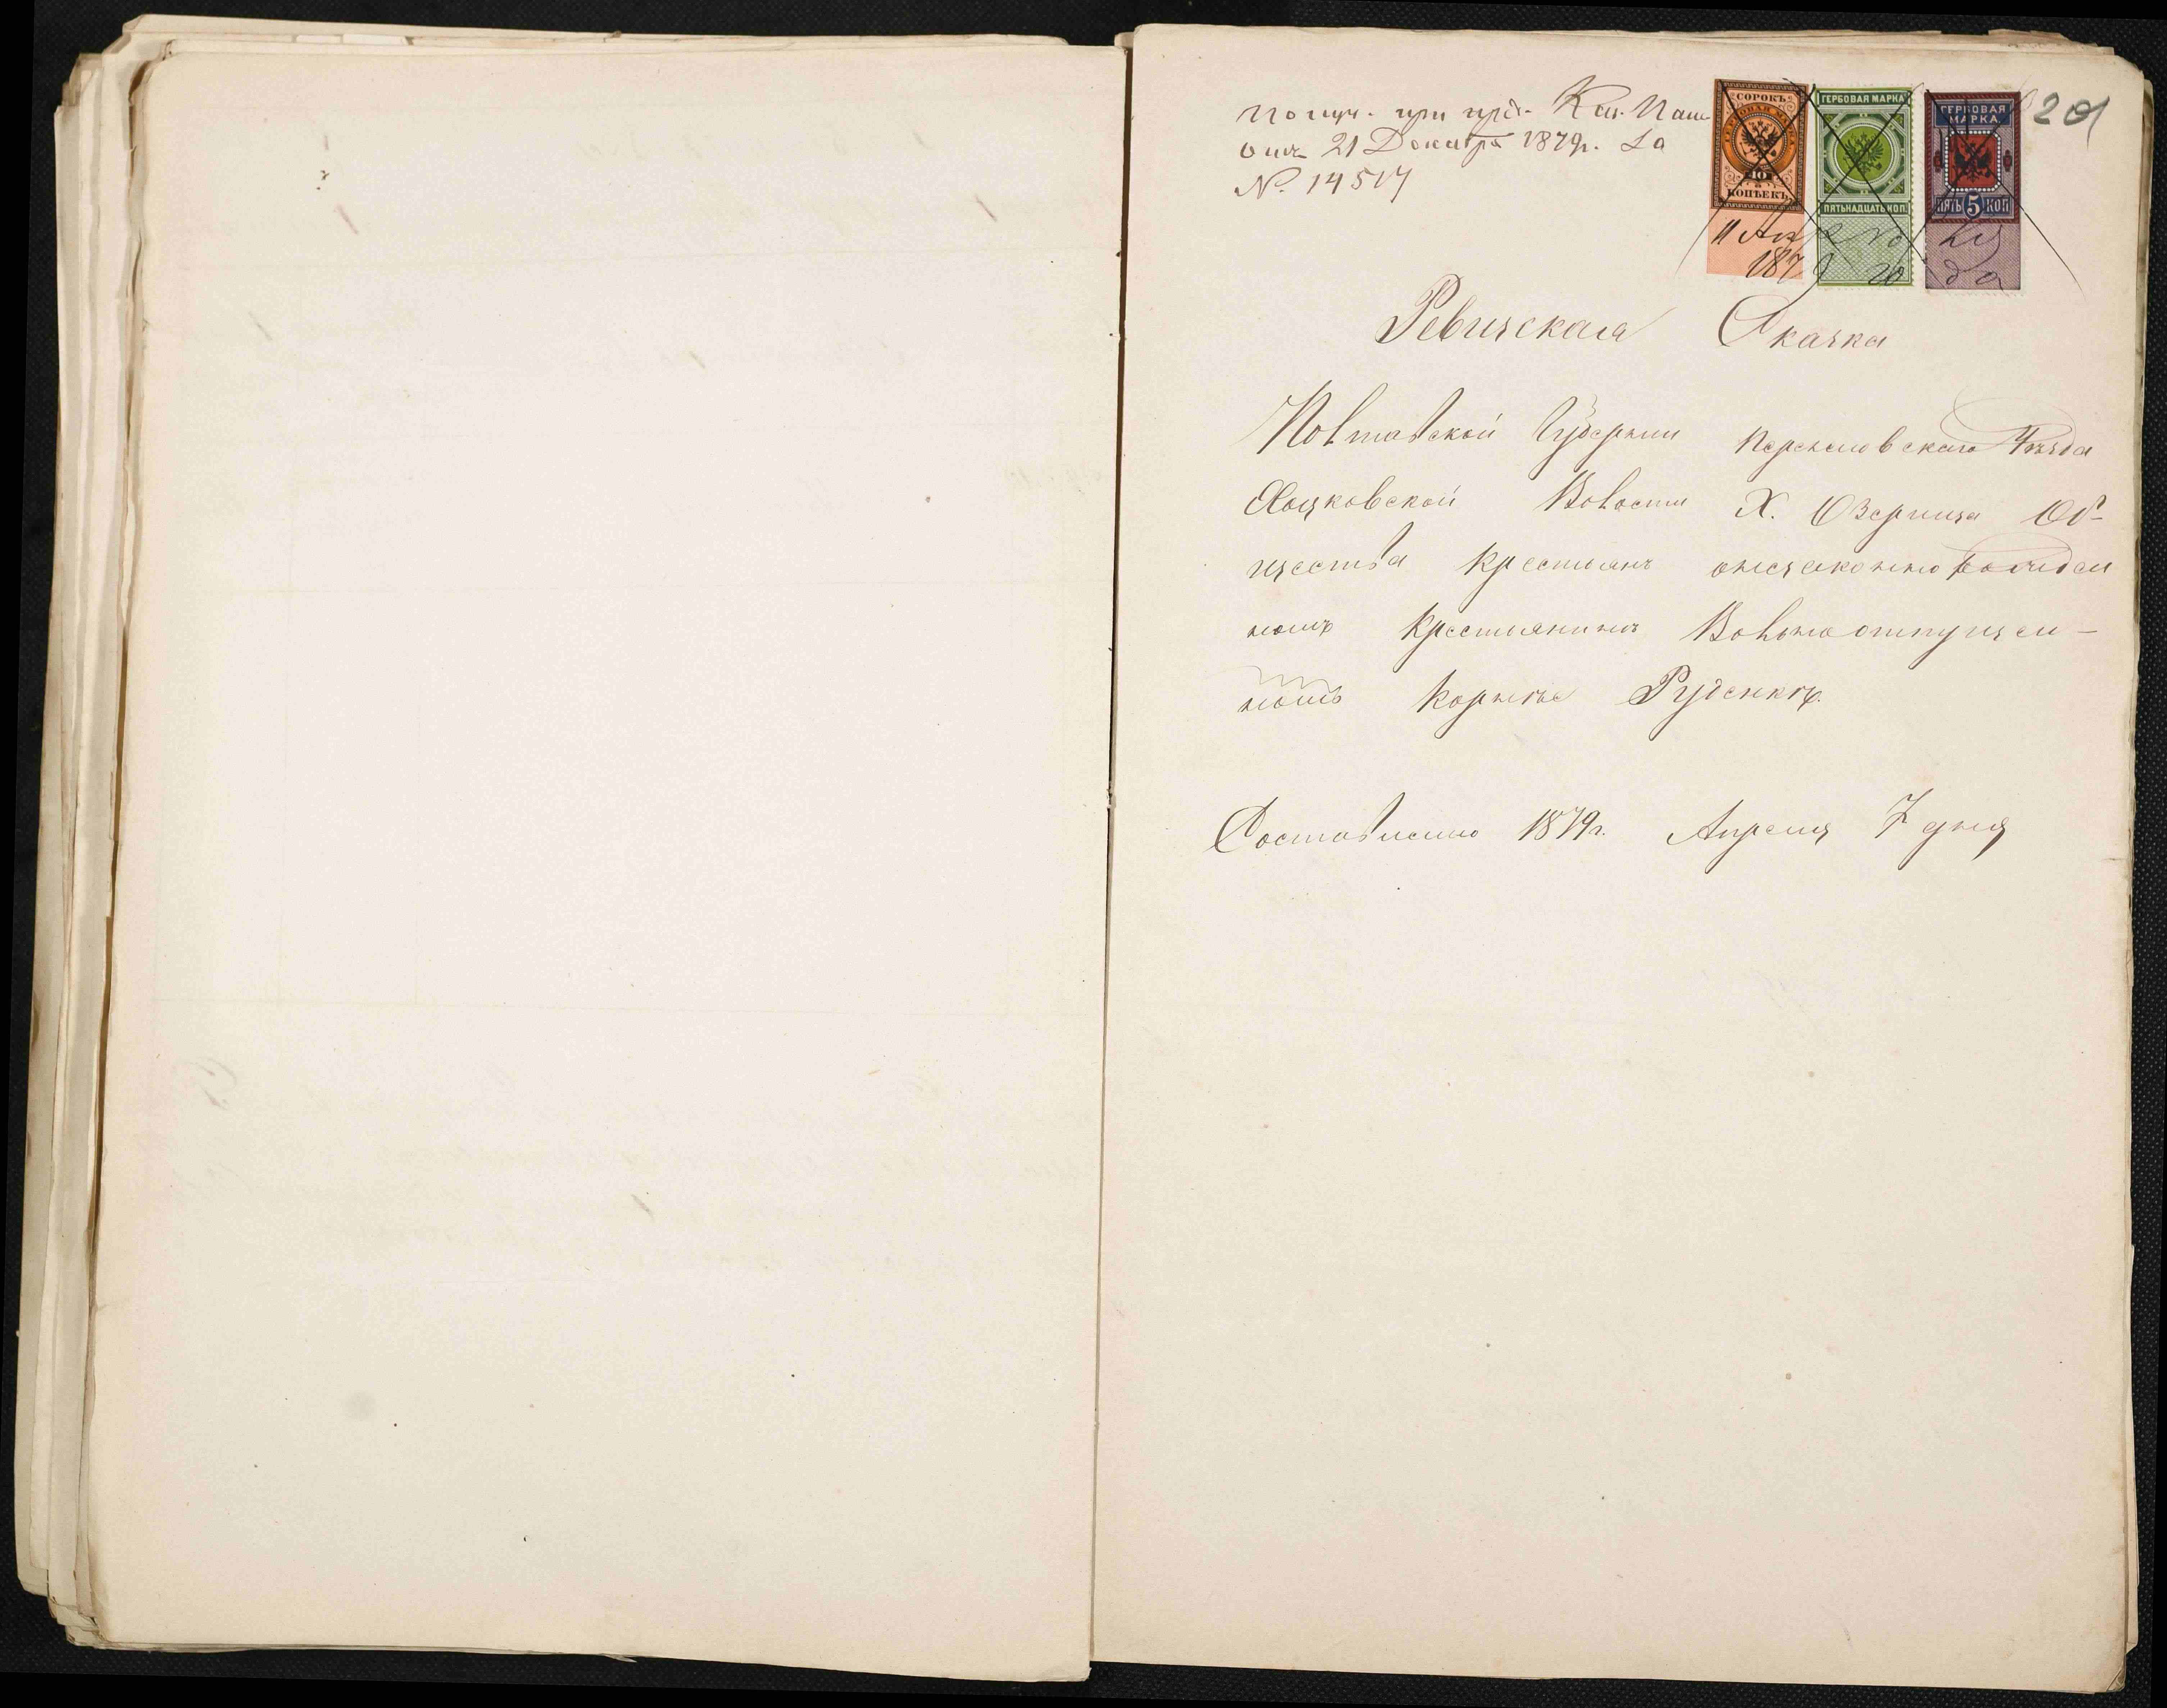 Получ. при пред. Каз. Пал.
отъ 21 Декабря 1879г. За
№. 14517
201
СОРОКЪ
ГЕРБОВАЯ МАРКА
40
КОПѢЕКЪ
ГЕРБОВАЯ МАРКА
ПЯТЬНАДЦАТЬ КОП.
ГЕРБОВАЯ
МАРКА.
ПЯТЬ 5 КОП
11 Апреля
1879 года
Ревизская Сказка
Полтавской Губернии Переяславского Уѣзда
Хоцковской Волости Х. Озерища Об-
щества крестьянъ
номъ Крестьянинѣ Вольноотпущен-
номъ Корнѣе Руденкѣ.
Составлено 1879г. Апреля 7 дня